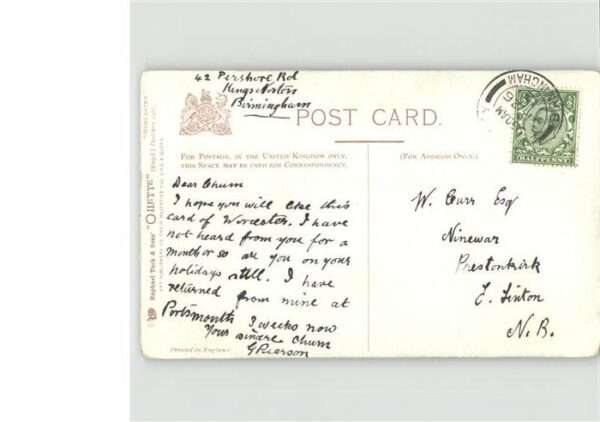 42 Pershore Rd
Kings Norton
Birmingham
POST CARD.
FOR POSTAGE IN THE UNITED KINGDOM ONLY,
THIS SPACE MAY BE USED FOR CORRESPONDENCE.
(FOR ADDRESS ONLY.)
Dear Chum
I hope you will like this
card of Worcester. I have
not heard from you for a
month or so are you on your
holidays still. I have
returned from mine at
Portsmouth 3 weeks now
Yours sincere Chum
G Pierson
Printed in England.
W. Curr Esq
Ninewar
Prestonkirk
E. Linton
N.B.
HALFPENNY
Raphael Tuck & Sons' "OILETTE"